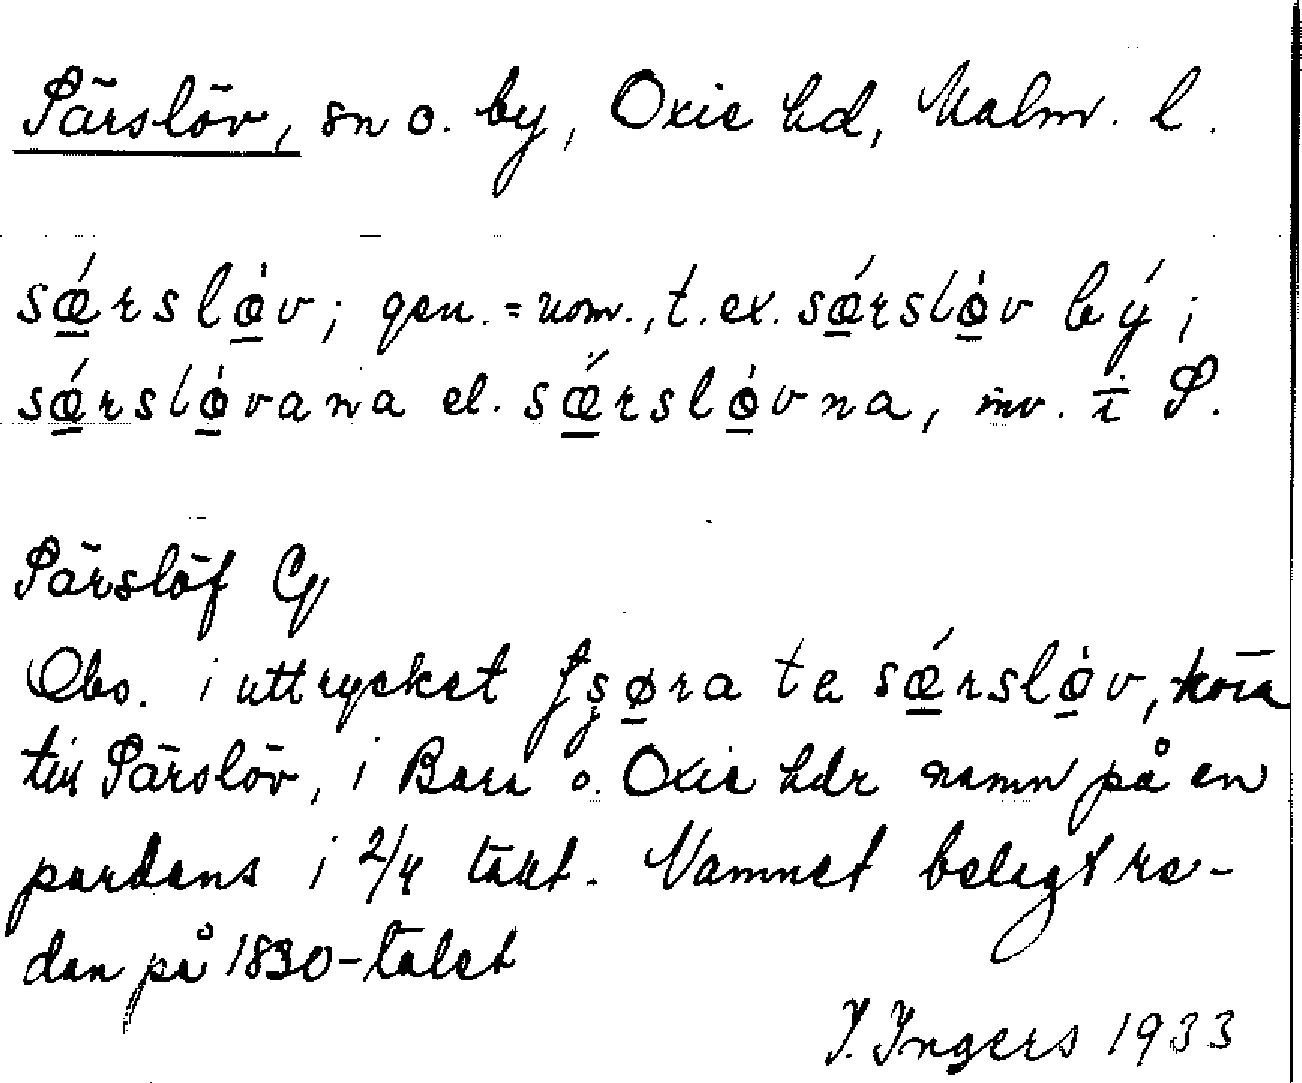 Särslöv, sn o. by, Oxie hd, Malm. l.
sǽrsløv; gen. = nom., t. ex. sǽrsløv bý;
sǽrsløvana el. sǽrsløvna, inv. i S.
Särslöf Gf
Obs. i uttrycket tʂøra te sǽrsløv, köra
till Särslöv, i Bara o. Oxie hdr namn på en
pardans i 2/4 takt. Namnet belagt re-
dan på 1830-talet
I. Ingers 1933